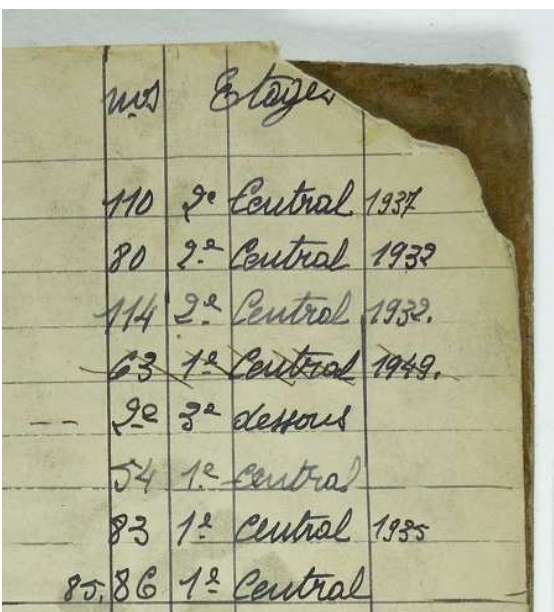 nos Etages
110 2e Central 1937
80 2e Central 1932
114 2e Central 1932.
63 1e Central 1949.
2e 3e dessous
54 1e Central
83 1e Central 1935
85. 86 1e Central